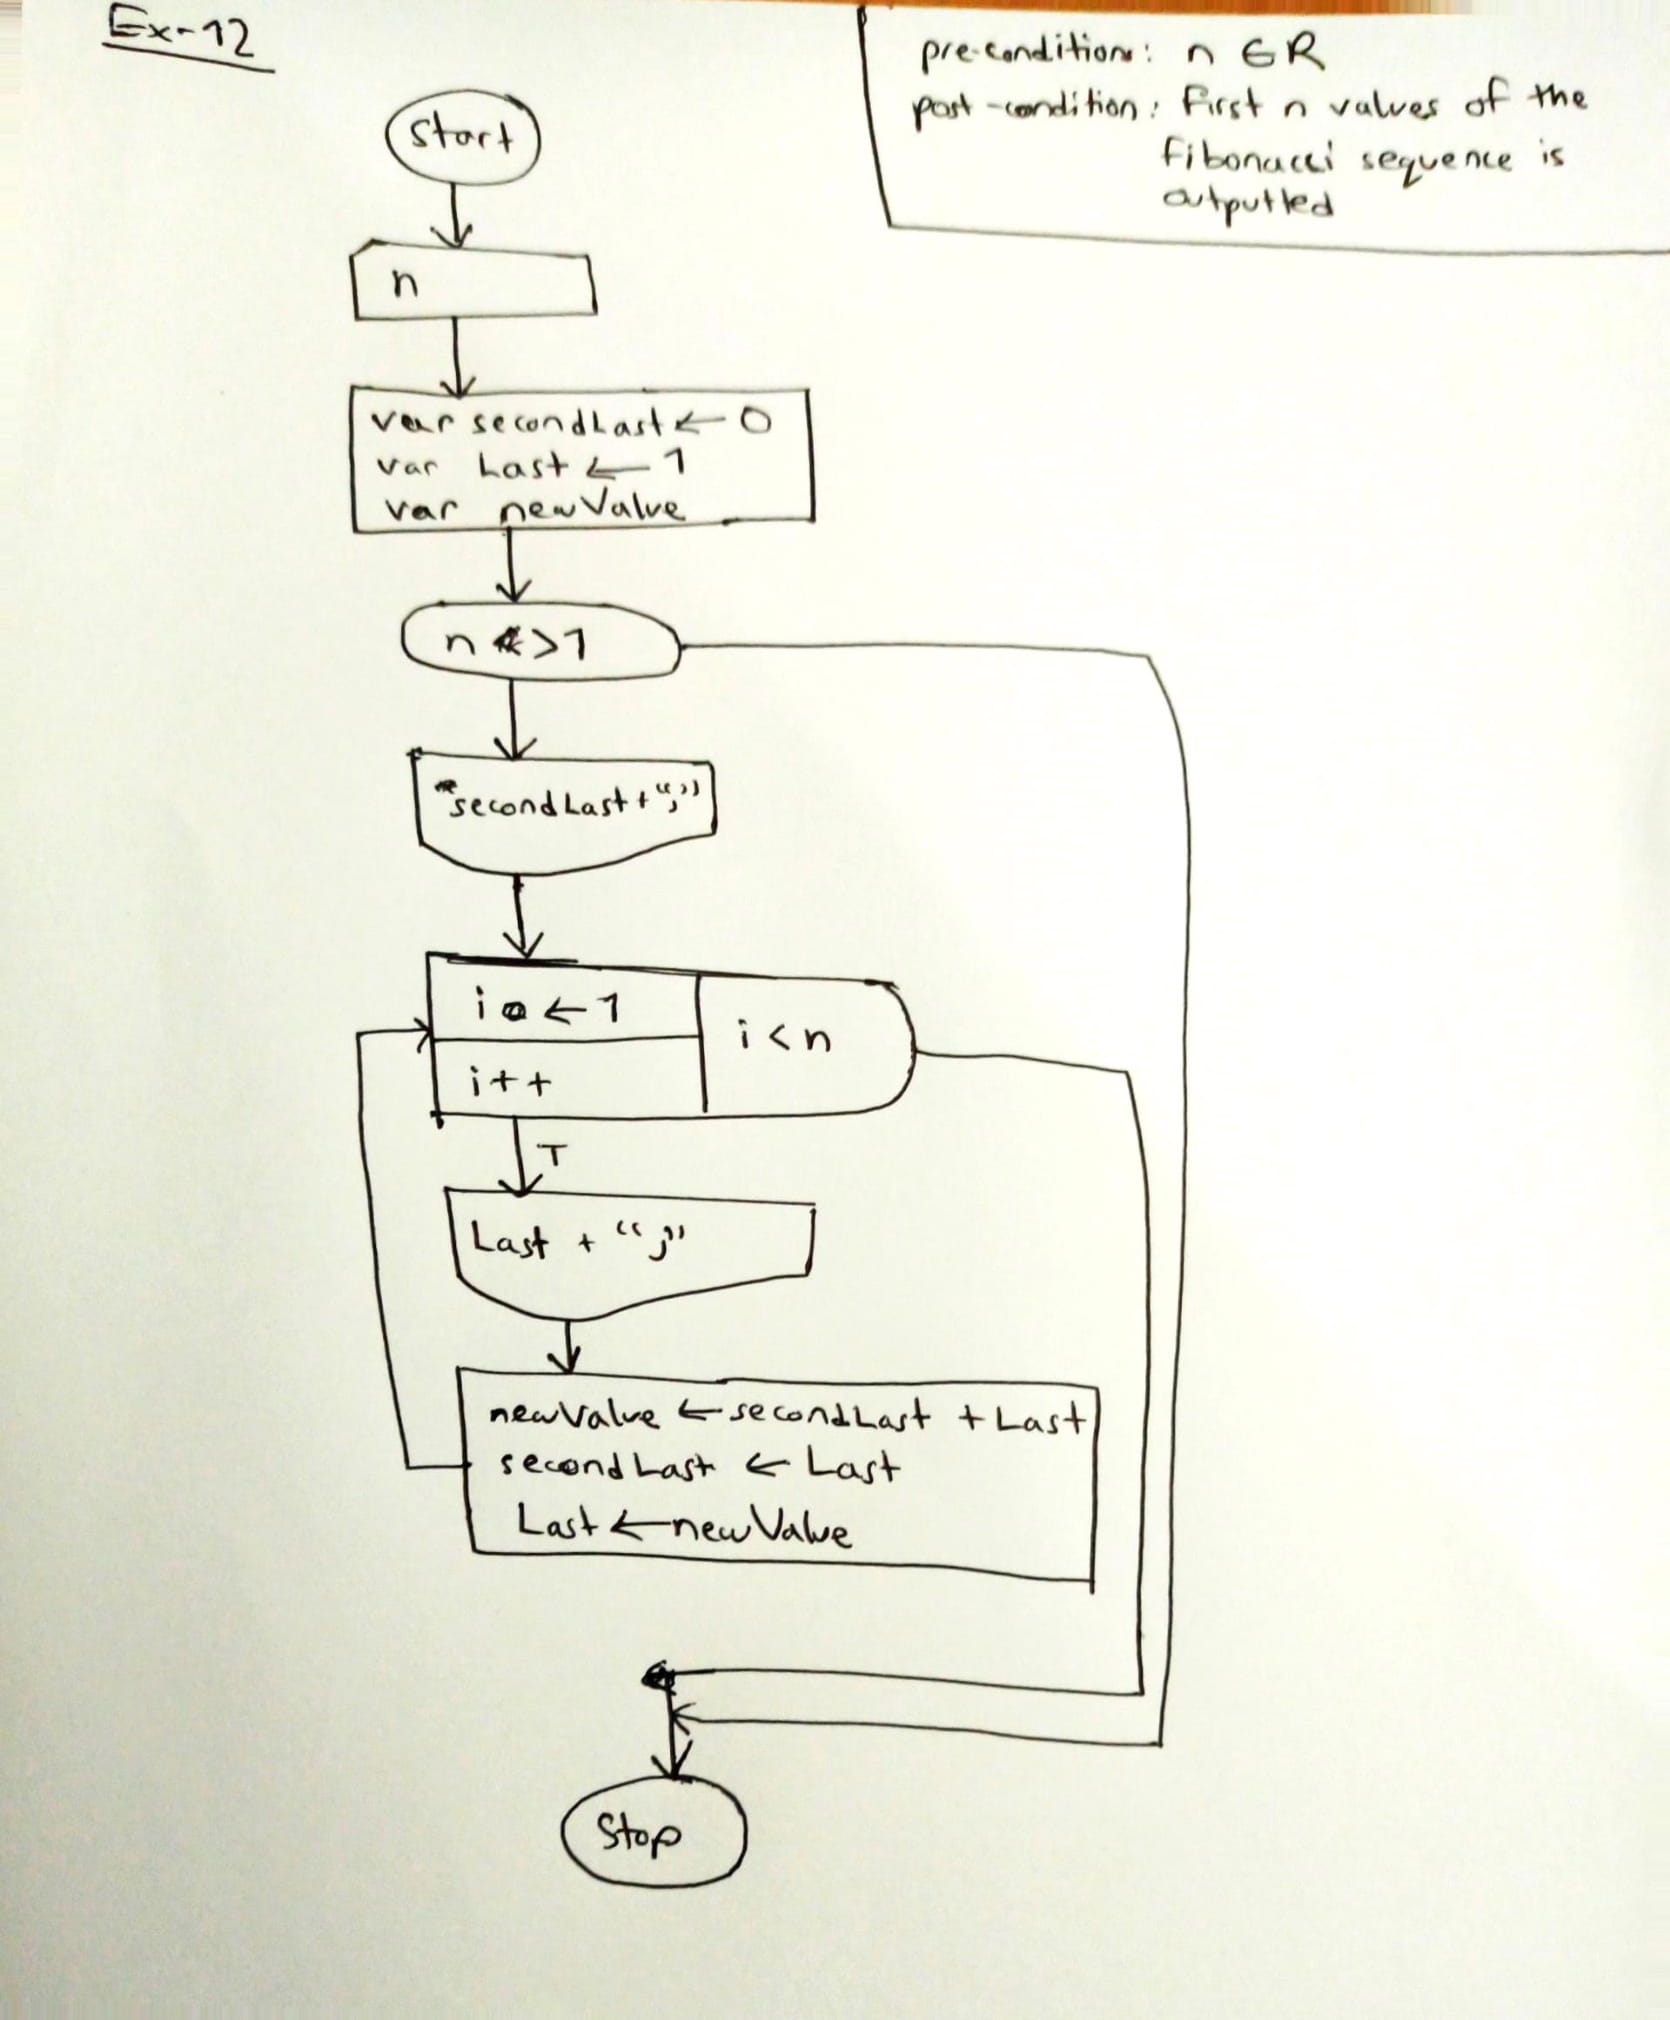 Ex-12
pre-condition: n ∈ R
post-condition: First n values of the
Fibonacci sequence is
outputted
Start
n
var secondLast ← 0
var Last ← 1
var newValue
n > 1
secondLast + ";"
i ← 1
i < n
i++
T
Last + ";"
newValue ← secondLast + Last
secondLast ← Last
Last ← newValue
Stop